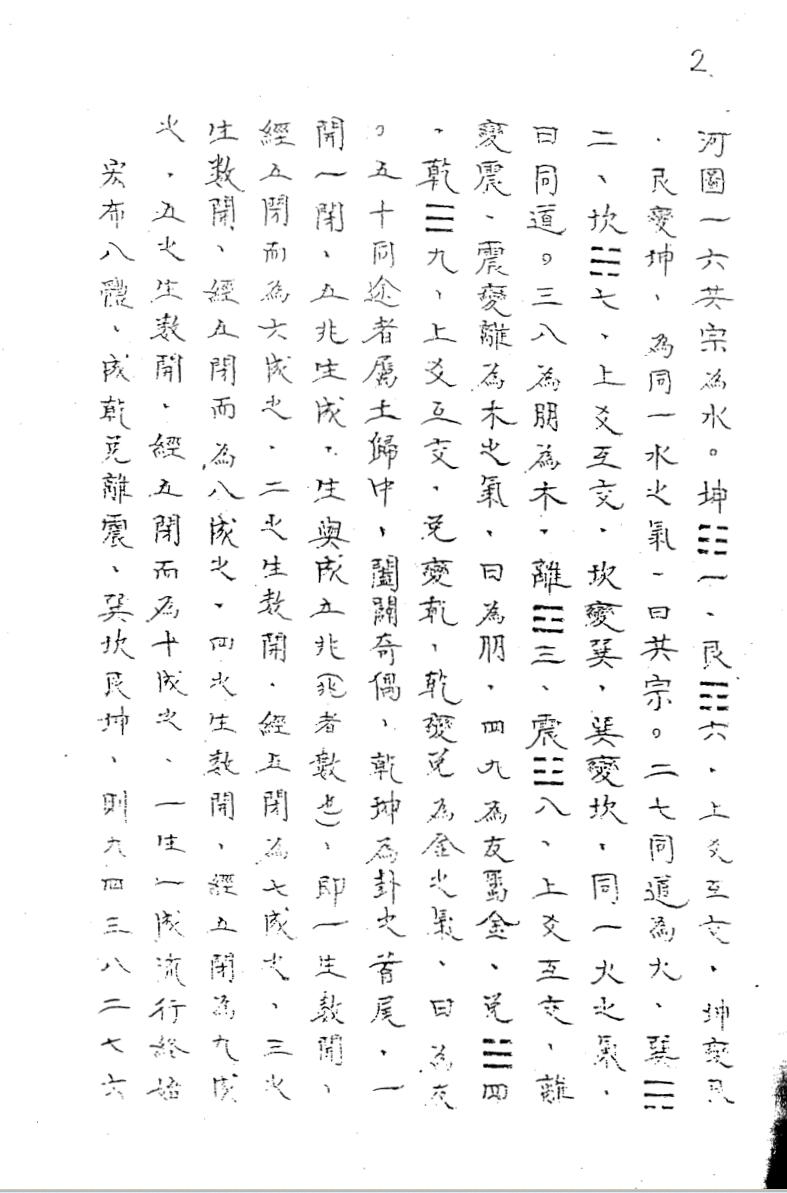 2.
河圖一六共宗為水。坤☷一、艮☶六、上爻互交、坤變艮
、艮變坤、為同一水之氣、曰共宗。二七同道為火、巽☴
二、坎☵七、上爻互交、坎變巽、巽變坎、同一火之氣、
曰同道。三八為朋為木、離☲三、震☳八、上爻互交、離
變震、震變離為木之氣、曰為朋、四九為友屬金、兌☱四
、乾☰九、上爻互交、兌變乾、乾變兌為金之氣、曰為友
。五十同途者屬土歸中、闔闢奇偶、乾坤為卦之首尾、一
開一閉、五兆生成、生與成五兆(兆者數也)、即一生數開、
經五閉而為六成之、二之生数開、經五閉為七成之、三之
生数開、經五閉而為八成之、四之生數開、經五閉為九成
之、五之生数開、經五閉而為十成之、一生一成流行終始
宏布八體、成乾兌離震、巽坎艮坤、則九四三八二七六